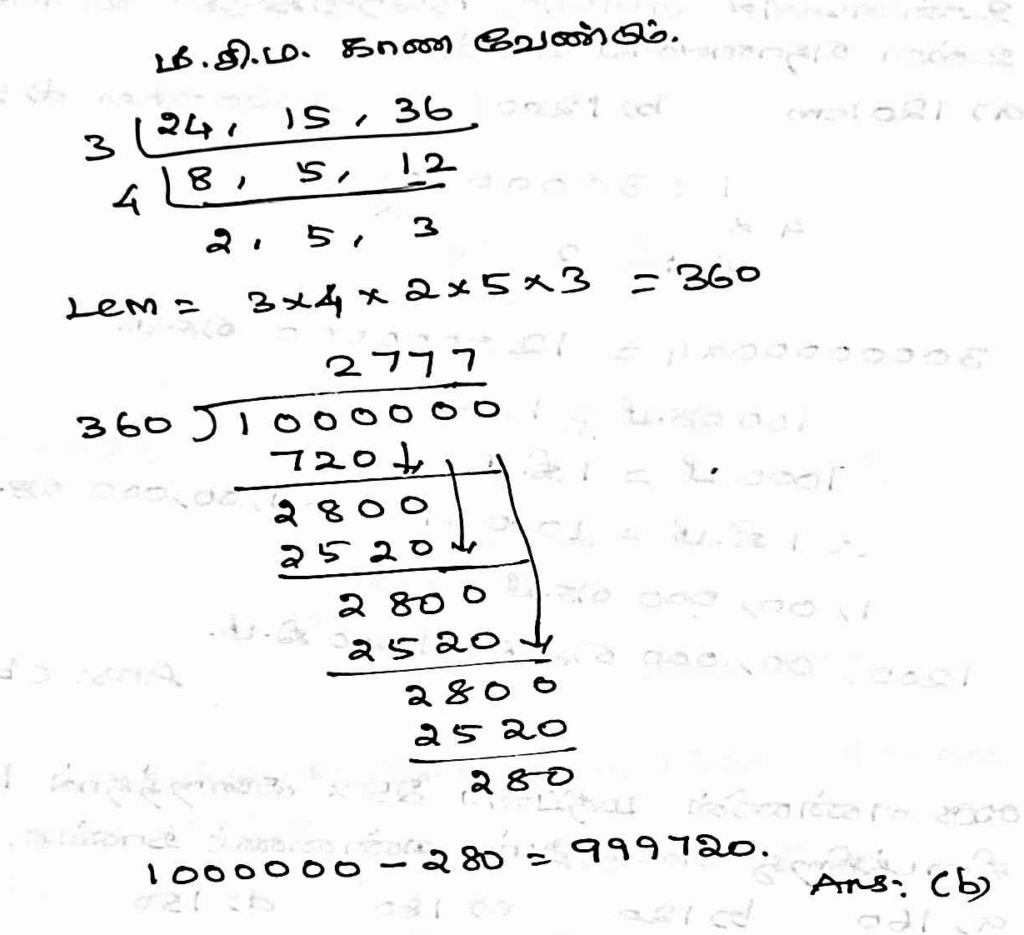 மீ.சி.ம. காண வேண்டும்.
3 24, 15, 36
4 8, 5, 12
2, 5, 3
Lcm = 3x4x2x5x3 = 360
2777
360 ) 1000000
720
2800
2520
2800
2520
2800
2520
280
1000000 - 280 = 999720.
Ans: (b)